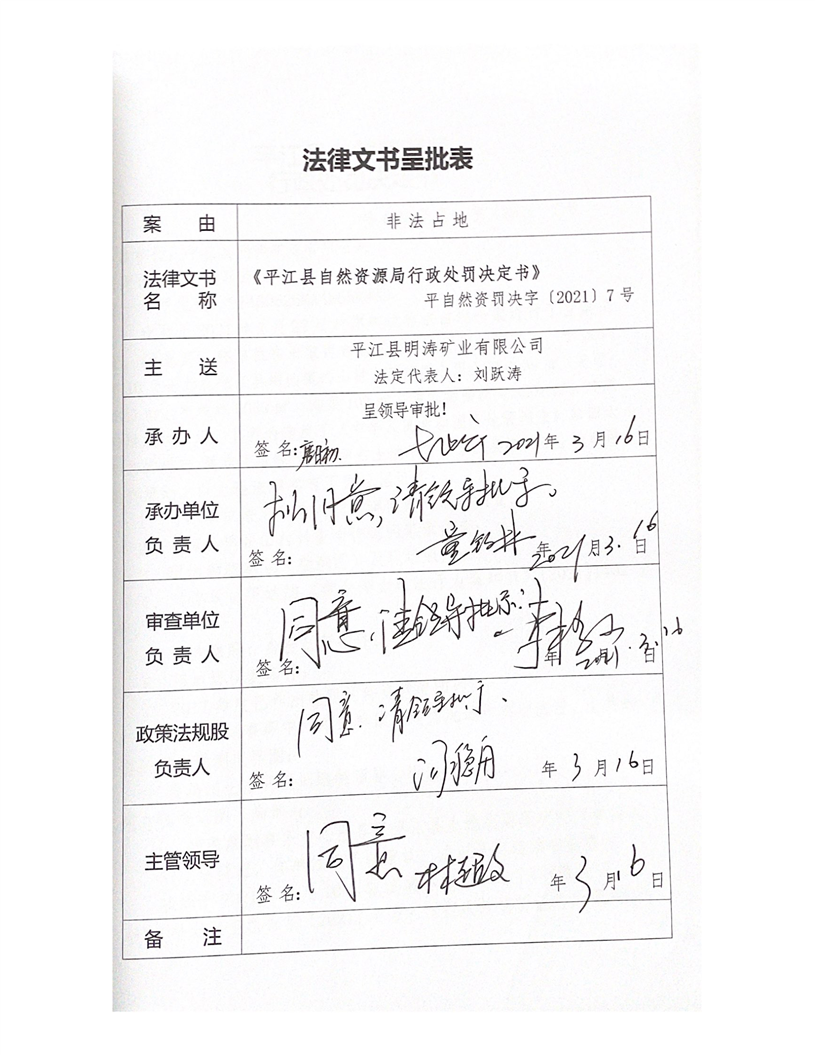 法律文书呈批表
案 由
非法占地
法律文书
名 称
《平江县自然资源局行政处罚决定书》
平自然资罚决字〔2021〕7号
主 送
平江县明涛矿业有限公司
法定代表人：刘跃涛
承 办 人
呈领导审批！
签 名： 2021年 3 月 16日
承办单位
负 责 人
拟同意，请领导批示。
签 名： 年2021月3.16日
审查单位
负 责 人
同意，请领导批示。
签名： 年2021.3.16日
政策法规股
负责人
同意，请领导批示、
签 名： 年 3 月 16日
主管领导
同意
签名： 年 3 月16日
备 注